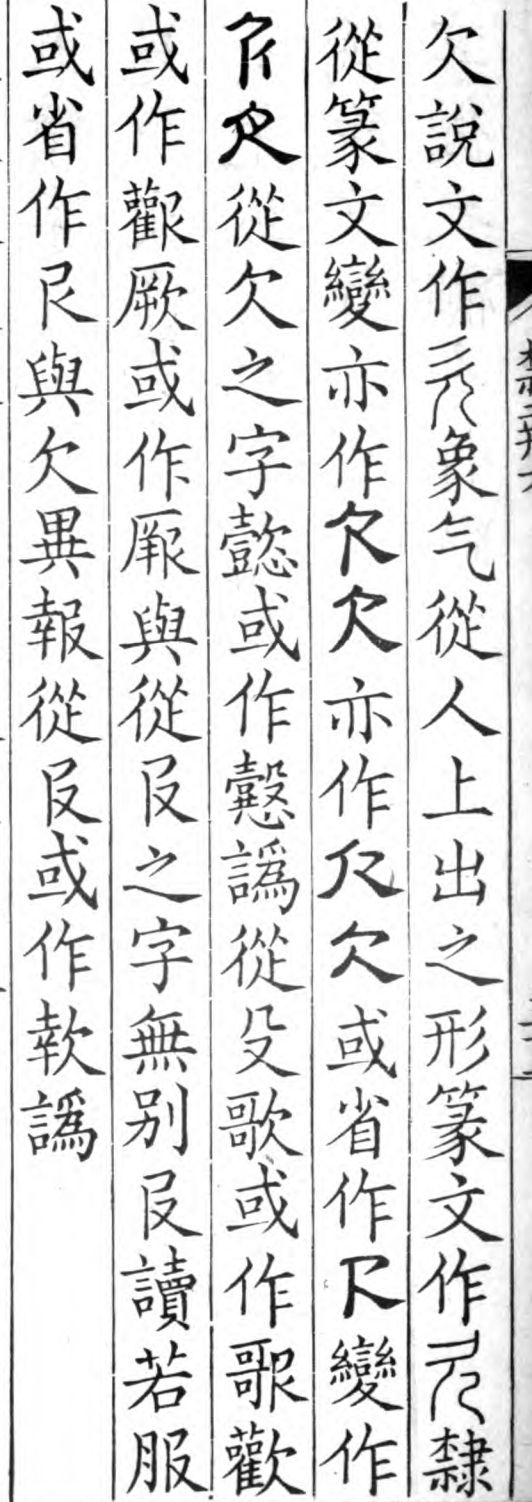 欠說文作象气從人上出之形篆文作隸
從篆文變亦作欠亦作欠或省作變作
從欠之字懿或作譌從殳歌或作歡
或作厥或作與從𠬝之字無别𠬝讀若服
或省作𠬝與欠異報從𠬝或作䡇譌